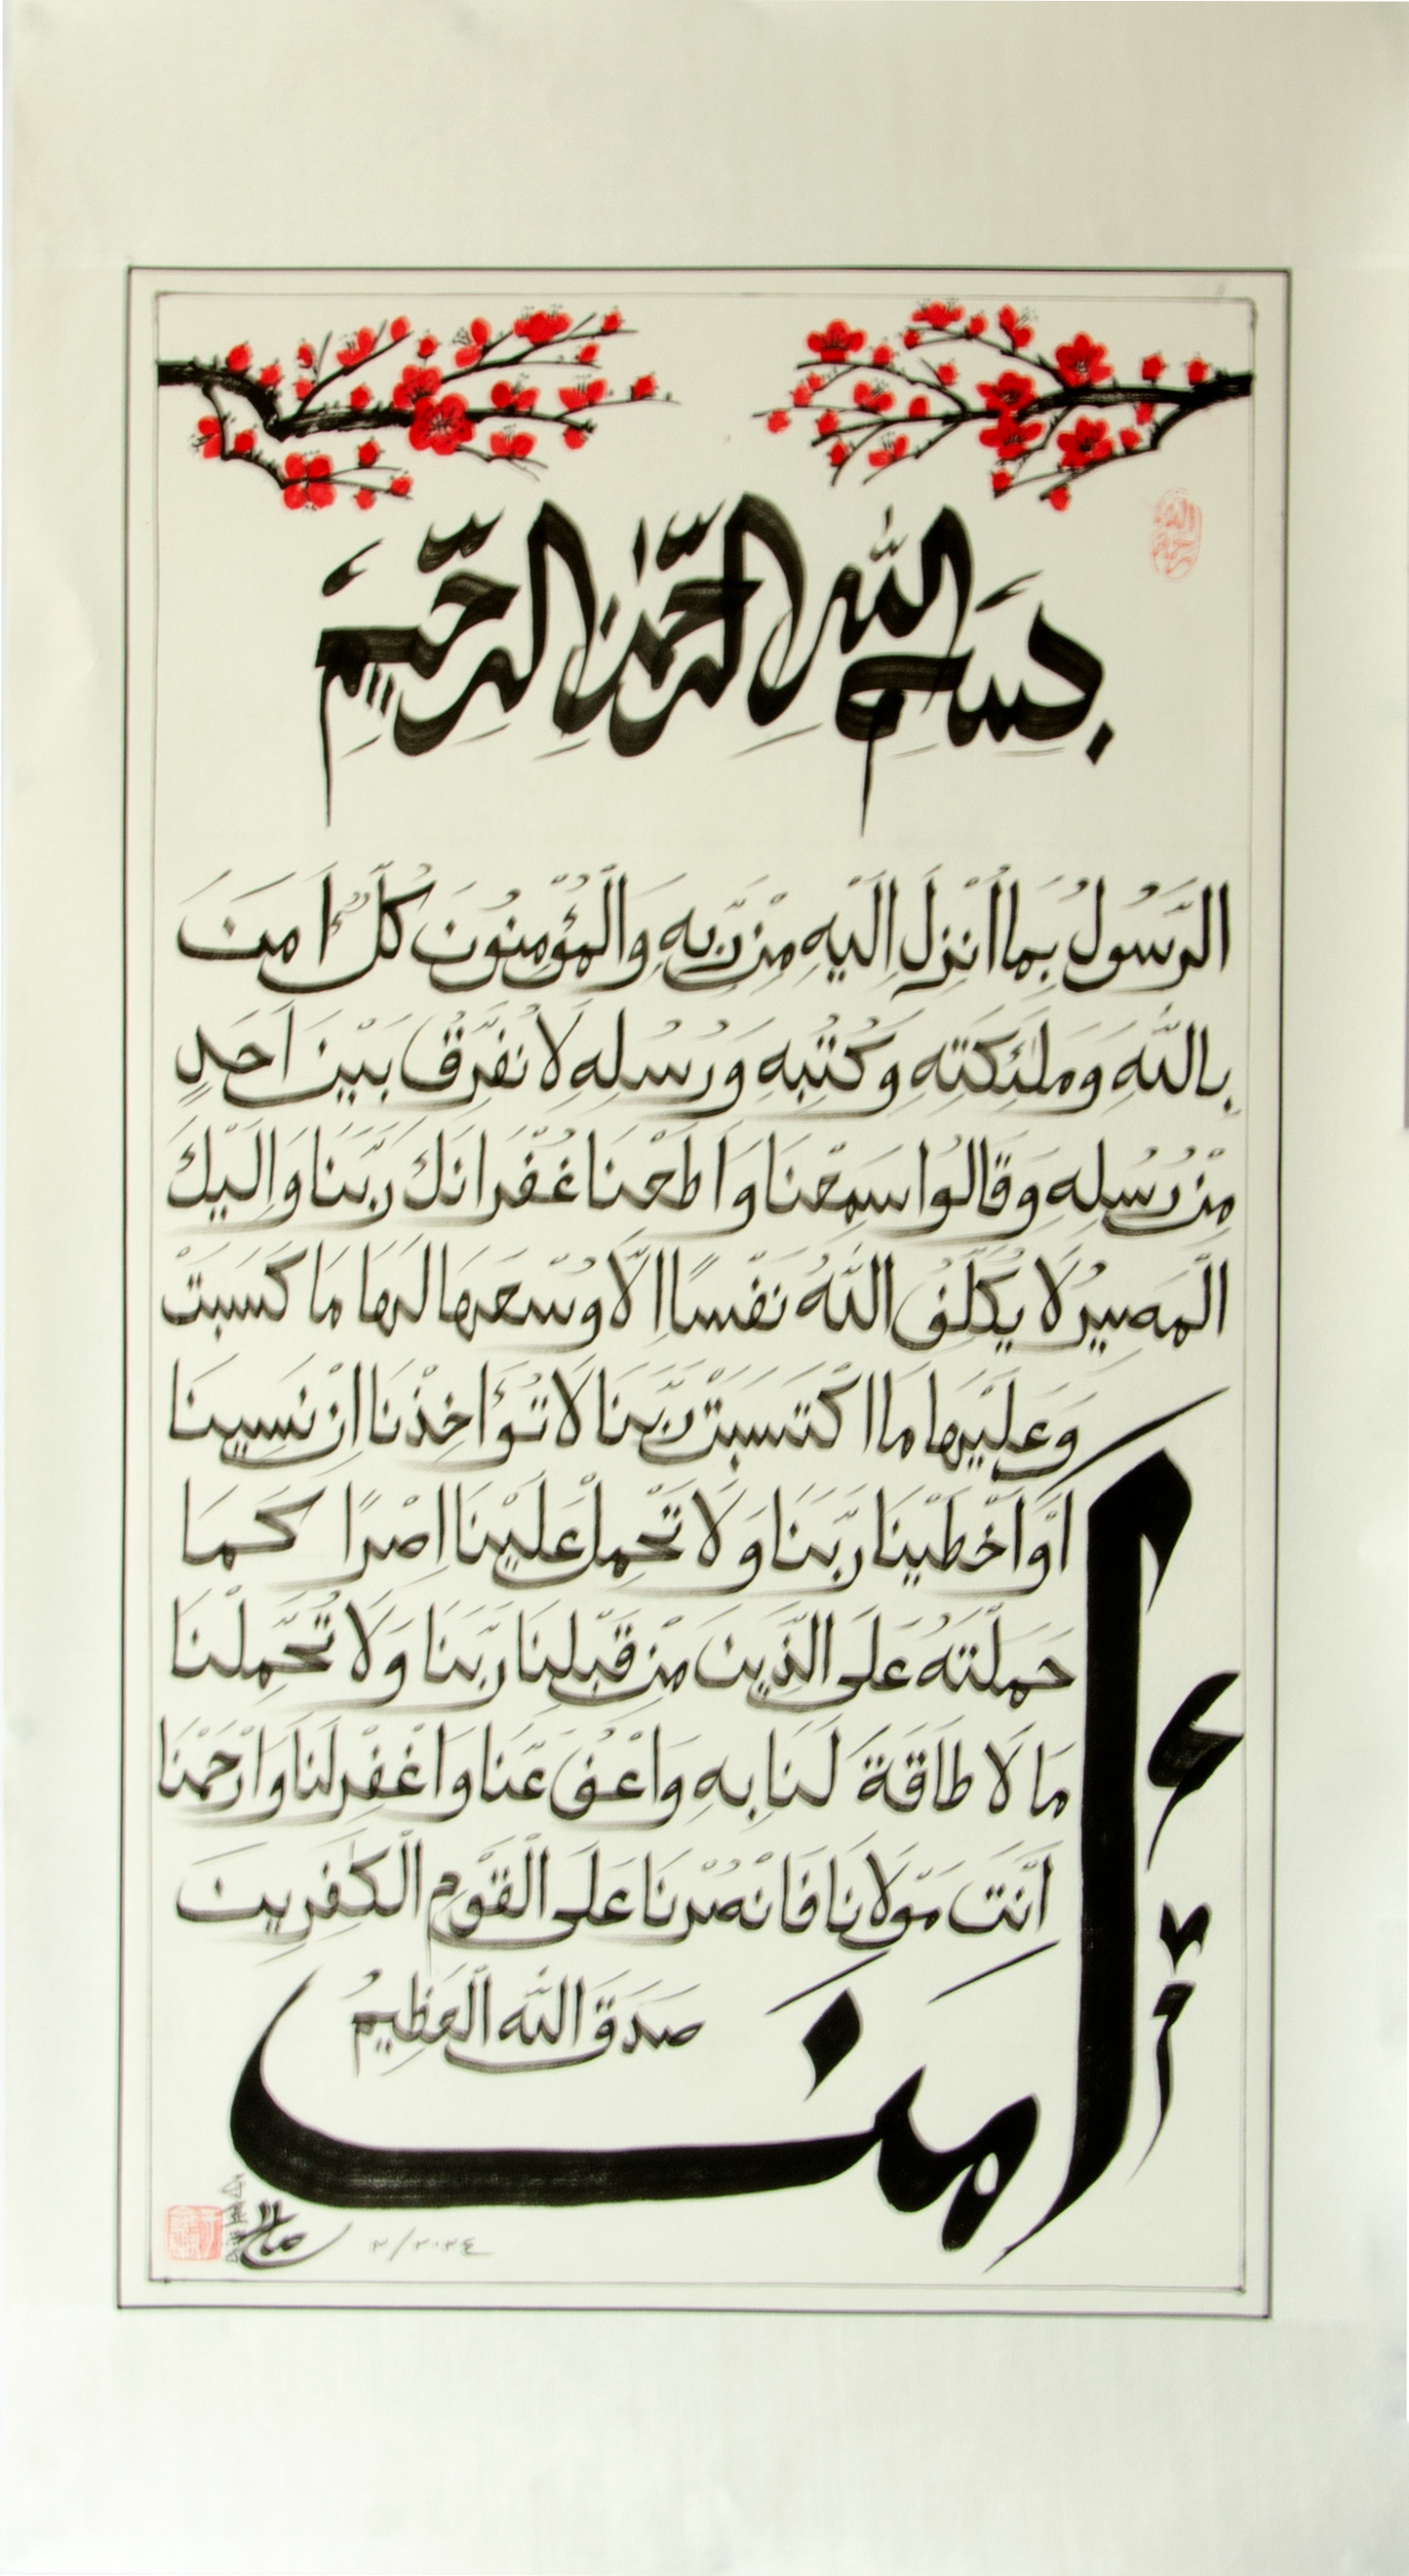 بِسْمِ اللّٰهِ الرَّحْمٰنِ الرَّحِيْمِ
اٰمَنَ
الرَّسُولُ بِمَا اُنْزِلَ اِلَيْهِ مِنْ رَبِّهِ وَالْمُؤْمِنُونَ كُلٌّ اٰمَنَ
بِاللّٰهِ وَمَلٰئِكَتِهِ وَكُتُبِهِ وَرُسُلِهِ لَا نُفَرِّقُ بَيْنَ اَحَدٍ
مِنْ رُسُلِهِ وَقَالُوا سَمِعْنَا وَاَطَعْنَا غُفْرَانَكَ رَبَّنَا وَاِلَيْكَ
الْمَصِيرُ لَا يُكَلِّفُ اللّٰهُ نَفْسًا اِلَّا وُسْعَهَا لَهَا مَا كَسَبَتْ
وَعَلَيْهَا مَا اكْتَسَبَتْ رَبَّنَا لَا تُؤَاخِذْنَا اِنْ نَسِينَا
اَوْ اَخْطَيْنَا رَبَّنَا وَلَا تَحْمِلْ عَلَيْنَا اِصْرًا كَمَا
حَمَلْتَهُ عَلَى الَّذِينَ مِنْ قَبْلِنَا رَبَّنَا وَلَا تُحَمِّلْنَا
مَا لَا طَاقَةَ لَنَا بِهِ وَاعْفُ عَنَّا وَاغْفِرْ لَنَا وَارْحَمْنَا
اَنْتَ مَوْلَانَا فَانْصُرْنَا عَلَى الْقَوْمِ الْكٰفِرِينَ
صَدَقَ اللّٰه الْعَظِيمُ
٢/٢٠٢٤